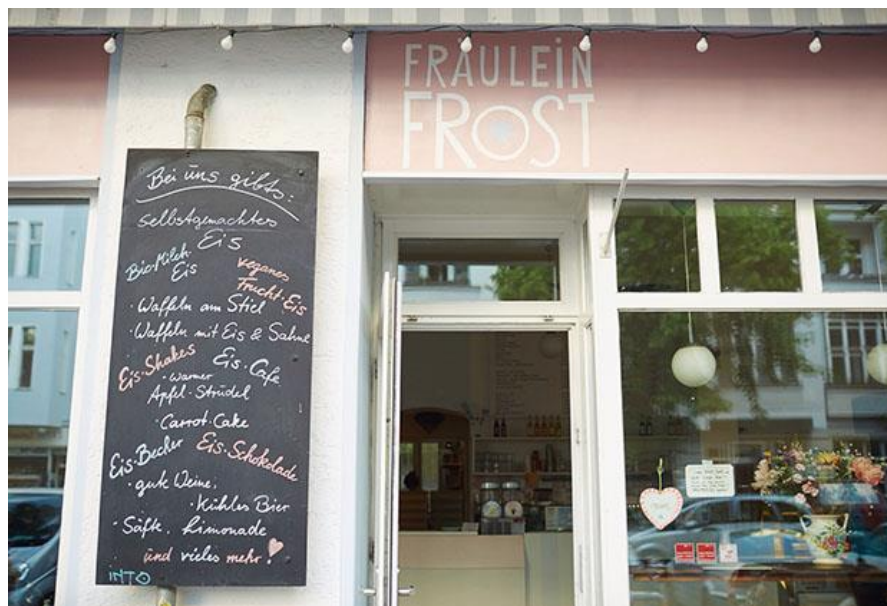 FRÄULEIN
FROST
Bei uns gibts:
selbstgemachtes
Eis
Bio-Milch-
Eis
veganes
Frucht-Eis
· Waffeln am Stiel
· Waffeln mit Eis & Sahne
Eis-Shakes
Eis-Cafe
· warmer
Apfel-Strudel
· Carrot-Cake
Eis-Becher
Eis-Schokolade
· gute Weine,
· Kühles Bier
· Säfte, Limonade
und vieles mehr!